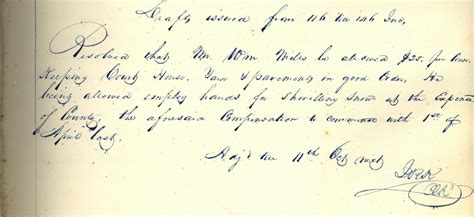 Drafts issued from 116 to 146 Inc,
Resolved that Mr. Wm Miles be allowed $25. per Ann.
Keeping Court House, Yard & pavements in good Order, He
being allowed employ hands for Shovelling Snow at the Expense
of County, the aforesaid Compensation to commence with 1st of
April last.
Adj to 11th Oct next
Clk